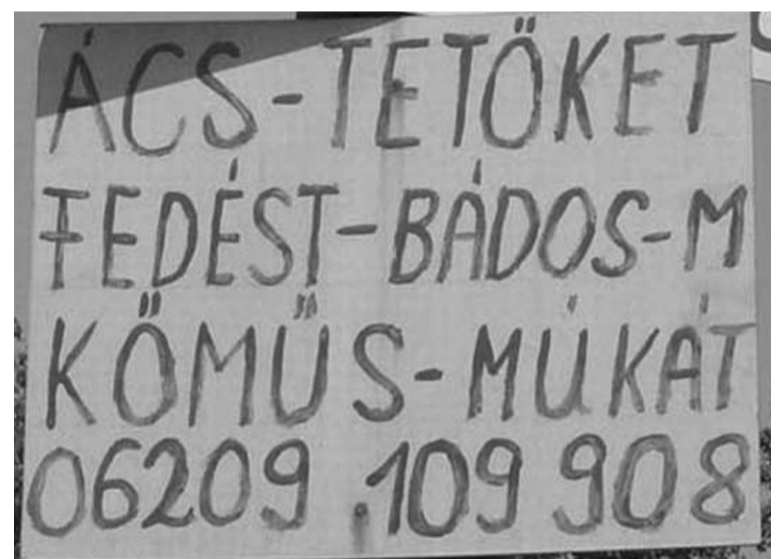 ÁCS-TETŐKET
FEDÉST-BÁDOS-M
KŐMŰS-MÚKÁT
06209.109 908